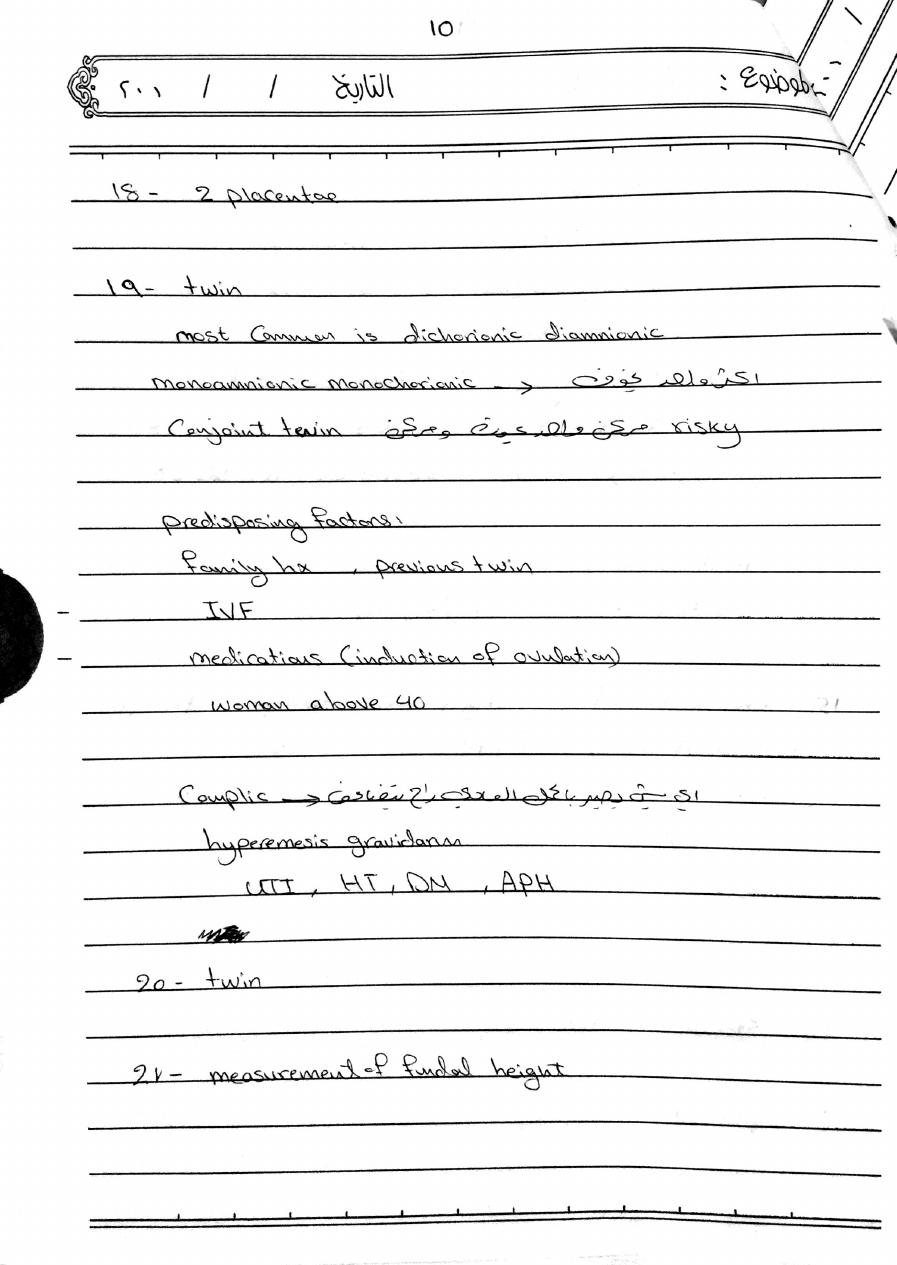 10
الموضوع :
التاريخ / / ٢٠٠١
18 - 2 placentae
19 - twin
most Common is dichorionic diamnionic
monoamnionic monochorionic →
Conjoint twin risky
predisposing factors:
family hx , previous twin
- IVF
- medications (induction of ovulation)
woman above 40
Complic → اي
hyperemesis gravidarum
UTI , HT , DM , APH
20 - twin
21 - measurement of fundal height